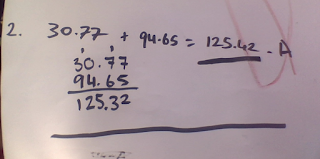 2. 30.77 + 94.65 = 125.42 - A
30.77
94.65
125.32